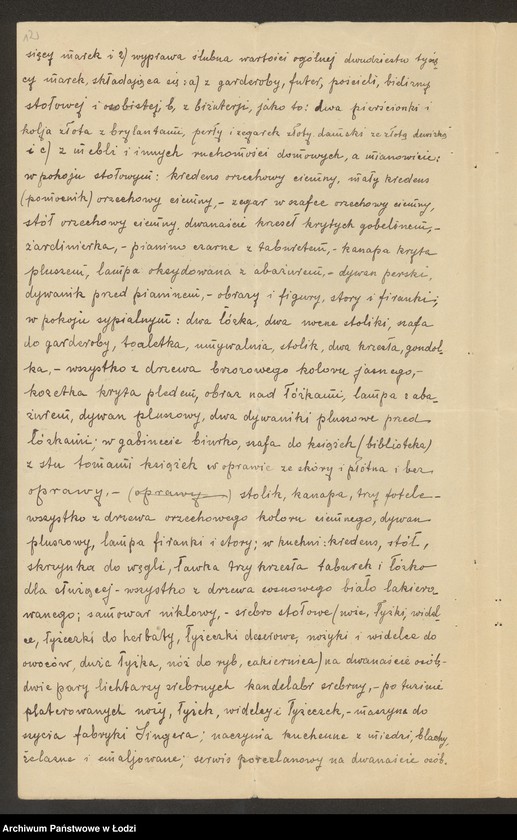 sięcy marek i 2) wyprawa ślubna wartości ogólnej dwudziestu tysię
cy marek, składająca się: a) z garderoby, futer, pościeli, bielizny
stołowej i osobistej b, z biżuterji, jako to: dwa pierścionki i
kolja złota z brylantami, perły i zegarek złoty damski ze złotą dewizką
i c) z mebli i innych ruchomości domowych, a mianowicie:
w pokoju stołowym: kredens orzechowy ciemny, mały kredens
(pomocnik) orzechowy ciemny, - zegar w szafce orzechowy ciemny,
stół orzechowy ciemny, dwanaście krzeseł krytych gobelinem, -
żardinierka, - pianino czarne z taburetem, - kanapa kryta
pluszem, lampa oksydowana z abażurem, - dywan perski,
dywanik przed pianinem, - obrazy i figury, story i firanki;
w pokoju sypialnym: dwa łóżka, dwa nocne stoliki, szafa
do garderoby, toaletka, umywalnia, stolik, dwa krzesła, gondol-
ka, - wszystko z drzewa brzozowego koloru jasnego, -
kozetka kryta pledem, obraz nad łóżkami, lampa z aba-
żurem, dywan pluszowy, dwa dywaniki pluszowe przed
łóżkami; w gabinecie biurko, szafa do książek (biblioteka)
z stu tomami książek w oprawie ze skóry i płótna i bez
oprawy, - (oprawy) stolik, kanapa, trzy fotele -
wszystko z drzewa orzechowego koloru ciemnego, dywan
pluszowy, lampa firanki i story; w kuchni: kredens, stół,
skrzynka do węgli, ławka trzy krzesła taburek i łóżko
dla służącej - wszystko z drzewa sosnowego biało lakiero
wanego; samowar niklowy, - srebro stołowe (noże, łyżki, widel-
ce, łyżeczki do herbaty, łyżeczki deserowe, nożyki i widelce do
owoców, duża łyżka, nóż do ryb, cukiernica) na dwanaście osób, -
dwie pary lichtarzy srebrnych kandelabr srebrny, - po tuzinie
platerowanych noży, łyżek, widelcy i łyżeczek, - maszyna do
szycia fabryki Singera; naczynia kuchenne z miedzi, blachy,
żelazne i emaljowane; serwis porcelanowy na dwanaście osób.
Archiwum Państwowe w Łodzi